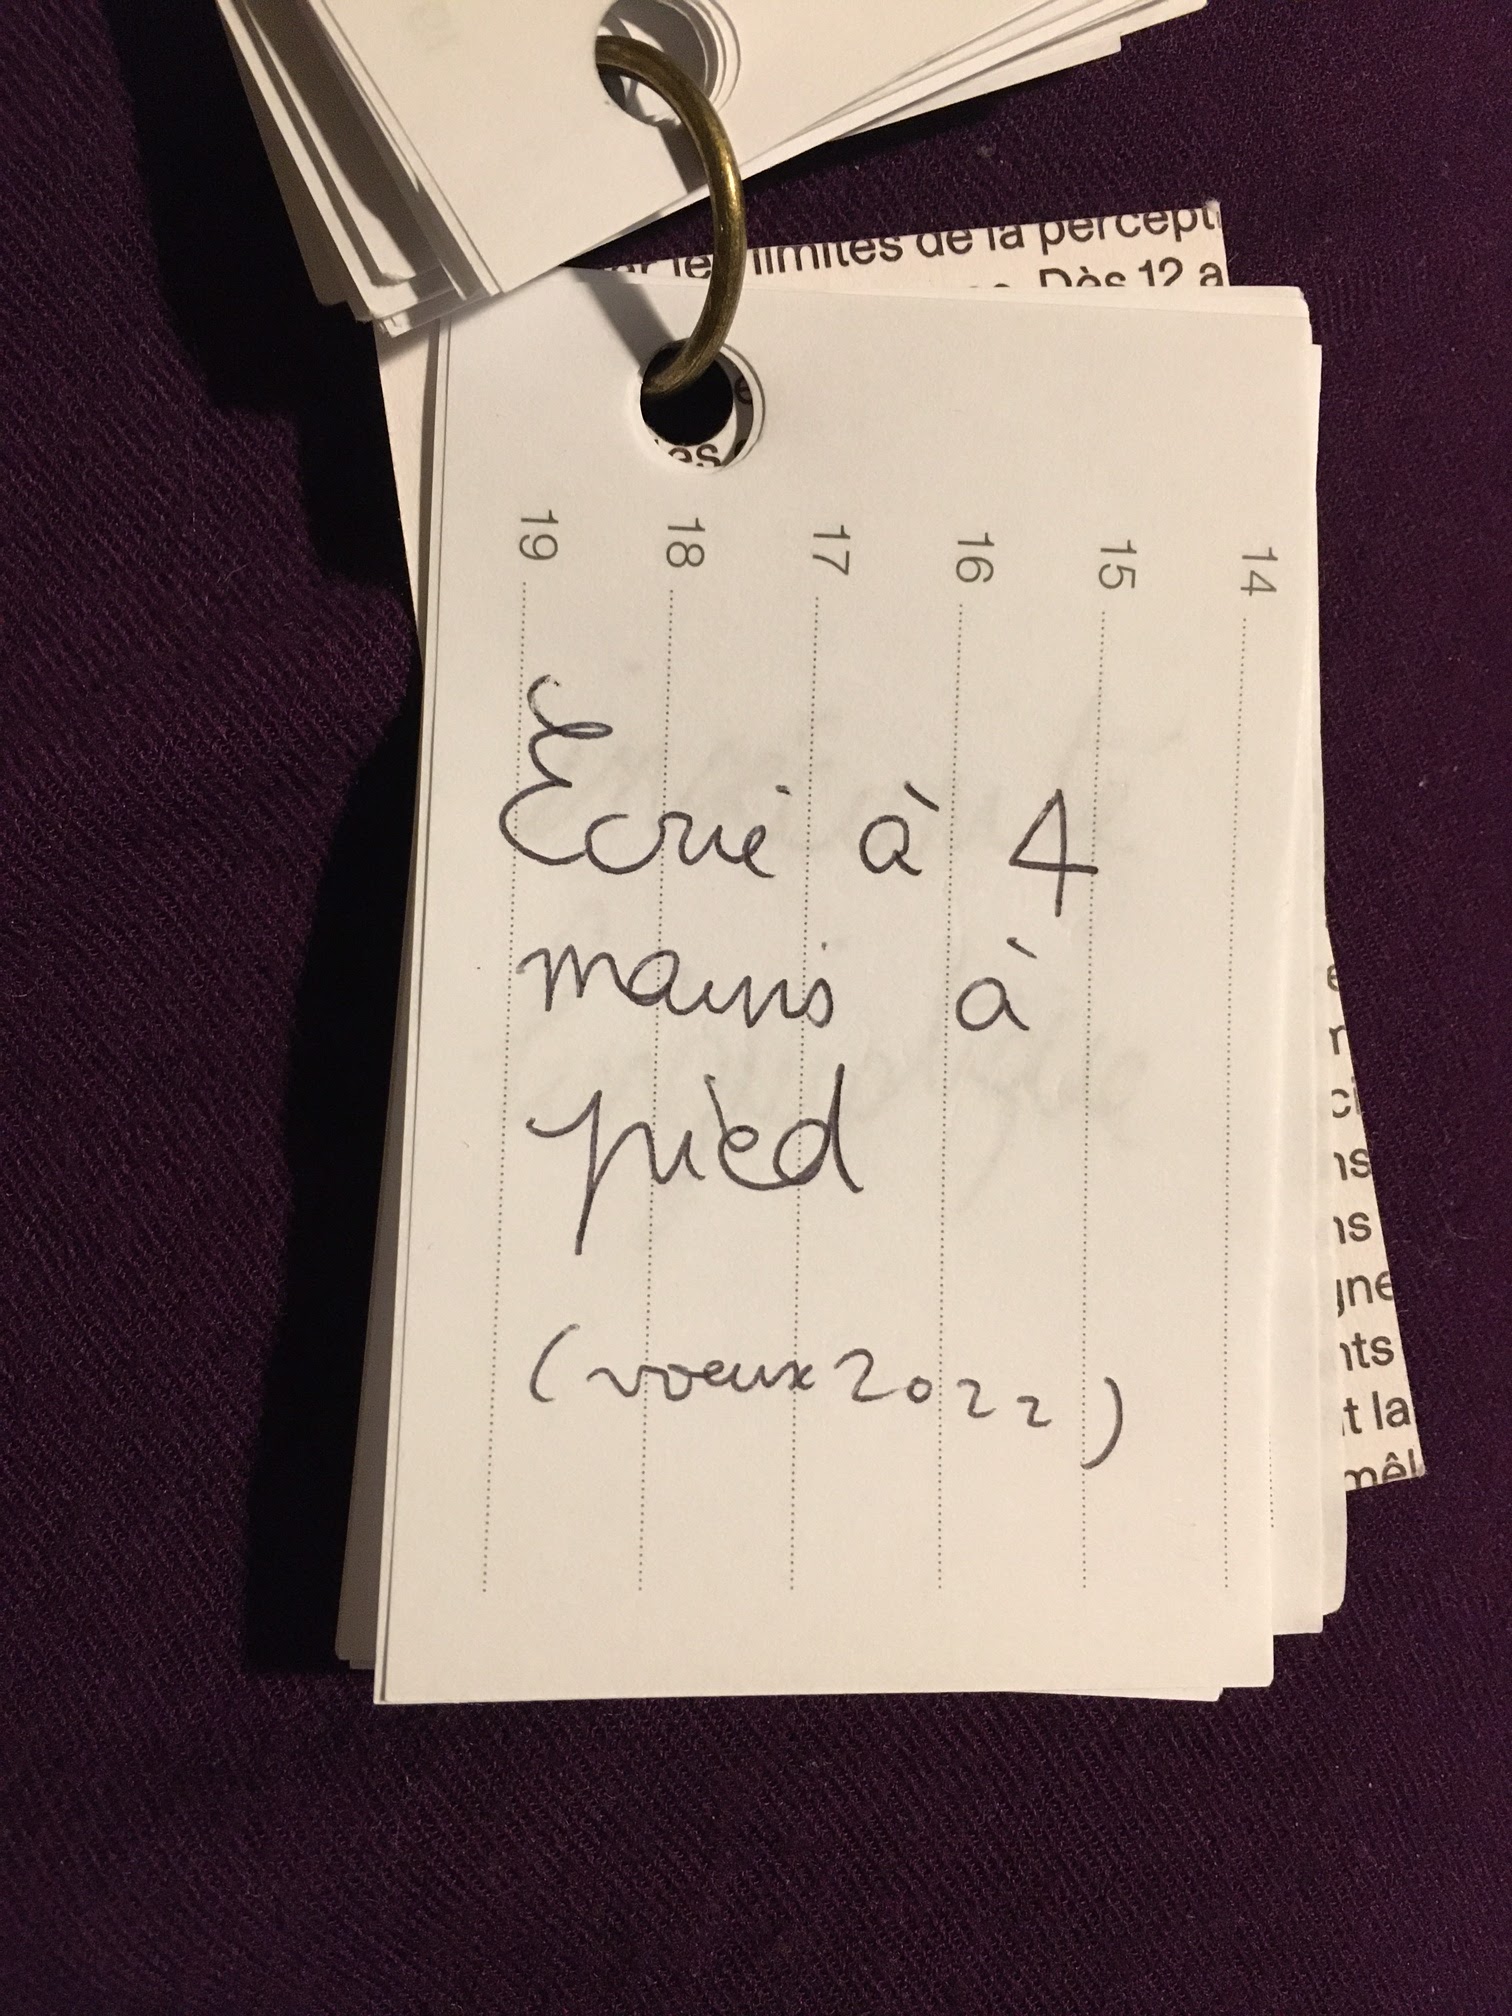 limites de la percept
Dès 12 a
19
18
17
16
15
14
Ecrie à 4
mains à
pied
(voeux 2022)
ns
ns
gne
nts
t la
mêl